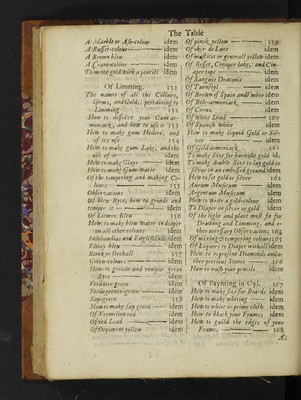 The Table
A Marble or Ash-colour idem
A Russet-colour idem
A Brown blew idem
A Crane-colour idem
To write gold with a pencill idem
Of Limming. 152
The names of all the Collours,
Gums, and Golds, pertaining to
Limming 152
How to dissolve your Gum ar-
moniack, and how to use it 153
How to make gum Hedere, and
of its use 154
How to make gum Lake, and the
use of it idem
How to make Glayr idem
How to make Gum-water idem
Of the tempering and making Co-
lours 155
Observations idem
Of blew Byce, how to grinde and
temper it idem
Of Litmose Blew 156
How to make blew water to diaper
on all other colours idem
Azure idem
Florey blew idem
Korck or Orchall 157
Green-colours idem
How to grinde and temper green
Byce idem
Verditer green idem
Verdegreece-green idem
Sap-green 158
How to make sap green idem
Of Vermilion red idem
Of red Lead idem
Of Orpiment yellow idem
Of pinck yellow 159
Of oker de Luce idem
Of masticot or generall yellow idem
Of Roset, Cinaper lake, and Cin-
aper tops idem
Of Sanguis Draconis idem
Of Turnsoyl idem
Of Brown of Spain and Umber idem
Of Bole-armoniack idem
Of Cerus idem
Of white Lead 160
Of Spanish White idem
How to make liquid Gold or Sil-
ver idem
Of Gold armoniack 161
To make Size for burnisht gold id.
To make double Size to lay gold or
silver on an embossed ground idem
How to set gold or silver 162
Aurum Musicum idem
Argentum Musicum idem
How to write a gold-colour idem
To Diaper on silver or gold idem
Of the light and place most fit for
Drawing and Limming, and o-
ther necessary Observations 163
Of mixing & tempering colours 165
Of Liquors to Diaper withall idem
How to represent Diamonds and o-
ther precious Stones 166
How to wash your pencils idem
Of Paynting in Oyl. 167
How to make size for Boards idem
How to make whiting idem
How to white or prime cloth idem
How to black your Frames idem
How to guild the edges of your
Frames 168